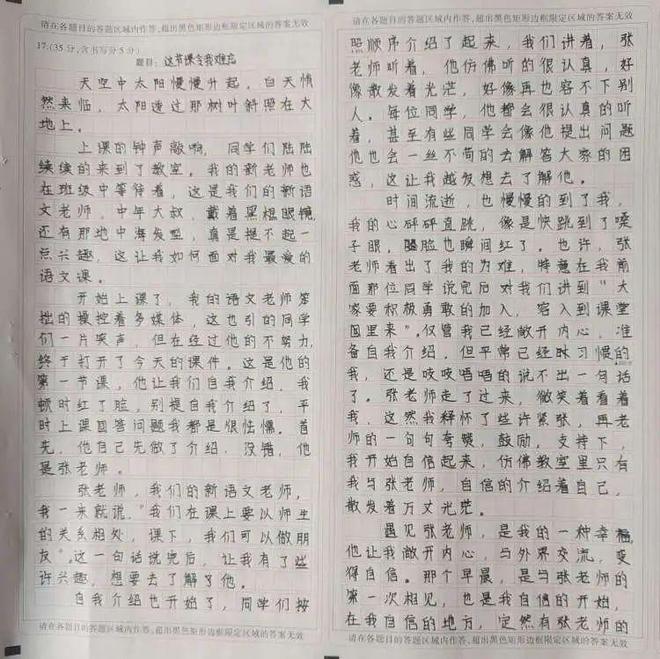 请在各题目的答题区域内作答,超出黑色矩形边框限定区域的答案无效
17.(35分,含书写分5分)
题目:这节课令我难忘
天空中太阳慢慢升起,白天悄
然来临,太阳透过那树叶斜照在大
地上。
上课的钟声敲响,同学们陆陆
续续的来到了教室。我的新老师也
在班级中等待着,这是我们的新语
文老师,中年大叔,戴着黑框眼镜,
还有那地中海发型,真是提不起一
点兴趣,这让我如何面对我最爱的
语文课。
开始上课了,我的语文老师笨
拙的操控着多媒体,这也引的同学
们一片笑声,但在经过他的不努力,
终于打开了今天的课件。这是他的
第一节课,他让我们自我介绍,我
顿时红了脸,别提自我介绍了,平
时上课回答问题我都是很怯懦。首
先,他自己先做了介绍,没错,他
是张老师。
张老师,我们的新语文老师,
我一来就说,“我们在课上要以师生
的关系相处,课下,我们可以做朋
友”。这一句话说完后,让我有了些
许兴趣,想要去了解了他。
自我介绍也开始了,同学们按
请在各题目的答题区域内作答,超出黑色矩形边框限定区域的答案无效
请在各题目的答题区域内作答,超出黑色矩形边框限定区域的答案无效
照顺序介绍了起来,我们讲着,张
老师听着,他仿佛听的很认真,好
像散发着光茫,好像再也容不下别
人。每位同学,他都会很认真的听
着,甚至有些同学会像他提出问题
他也会一丝不苟的去解答大家的困
惑,这让我越发想去了解他。
时间流逝,也慢慢的到了我,
我的心砰砰直跳,像是快跳到了嗓
子眼,脸也瞬间红了。也许,张
老师看出了我的为难,特意在我前
面那位同学说完后对我们讲到“大
家要积极勇敢的加入,容入到课堂
里来”。仅管我已经敞开内心,准
备自我介绍,但平常已经习惯的
我,还是吱吱唔唔的说不出一句话
了。张老师走了过来,微笑着看着
我,这然我释怀了些许紧张,再老
师的一句句夸奖,鼓励,支持下,
我开始自信起来,仿佛教室里只有
我与张老师,自信的介绍着自己,
散发着万丈光茫。
遇见张老师,是我的一种幸福,
他让我敞开内心,与外界交流,变
得自信。那个早晨,是与张老师的
第一次相见,也是我自信的开始,
在我自信的地方,定然有张老师的
请在各题目的答题区域内作答,超出黑色矩形边框限定区域的答案无效